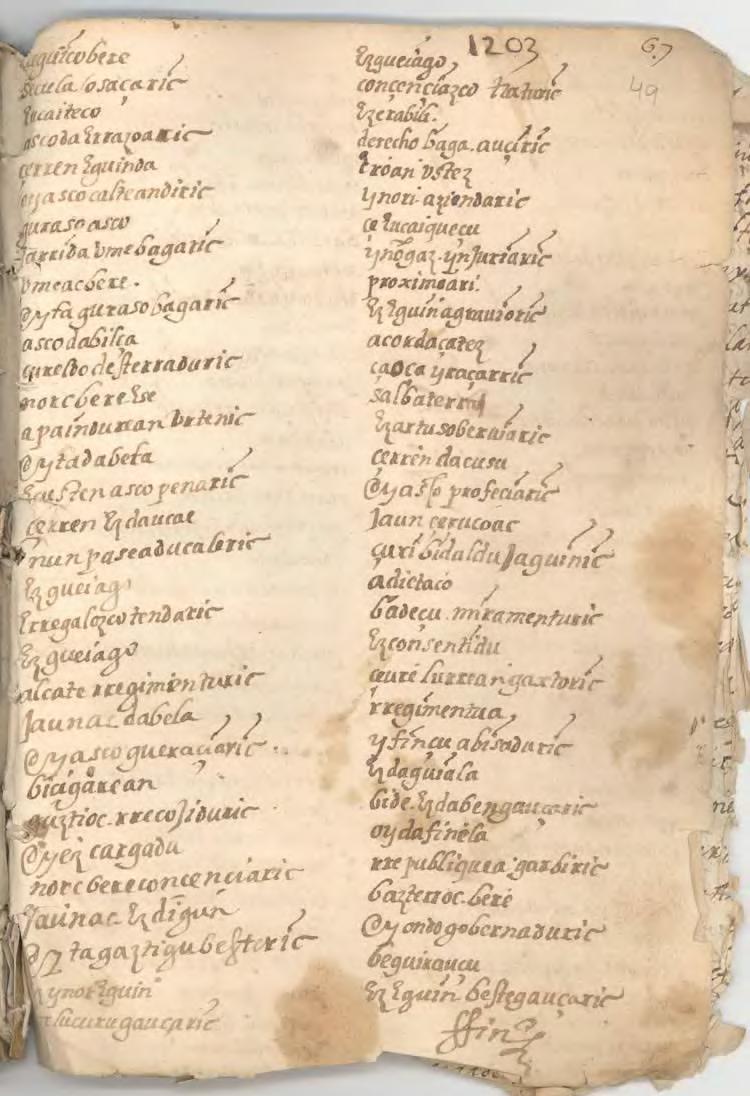 1203
67
49
escuela losacaric
ascoda Errazoaric
cerren Eguinda
guraso asco
Jarrida Vmebagaric
Vmeac bere.
Oyta gurasobagaric
ascodabilça
çureldo desterraduric
norcberelse
apainduric an Vrtenic
Oytadabela
Ecusten asco penaric
cerren Ez daucae
nun paseaducaleric
Ez gueiago
Erregalozco tendaric
Ez gueiago
alcate rregimenturic
Jaunac dabela
Oy asco gueraciaric
biçigarean
guztioc rrecojiduric
Oyez cargadu
norc bere concenciaric
Jaunac Ez digun
Oyta gaztigu besteric
ynor Eguin
lucurugauçaric
Ez gueiago
concenciazco tratturic
Ez erabili.
derecho baga. auçiric
Eroan Vstez
ynori aziendaric
ce Eucaiquecu
ynogaz. ynjuriaric
proximoari.
Ez Eguin agravioric
acordacatez
çaoça yraçarric
salbaterra
Ez artu soberviaric
cerren dacusu
Oy asko profeciaric
Jaun çerucoac
çuri bidaldu Jaquinic
adietaco
badeçu. miramenturic
Ez consentidu
ceure lurrean gaxtoric
rregimentua
yfincu abisaduric
Ez daguiala
bide. Ez daben gauçaric
oydafinela
rrepubliquea garbiric
bazterroc bere
Oy ondo gobernaduric
beguiraucu
Ez Eguin bestegauçaric
ffin